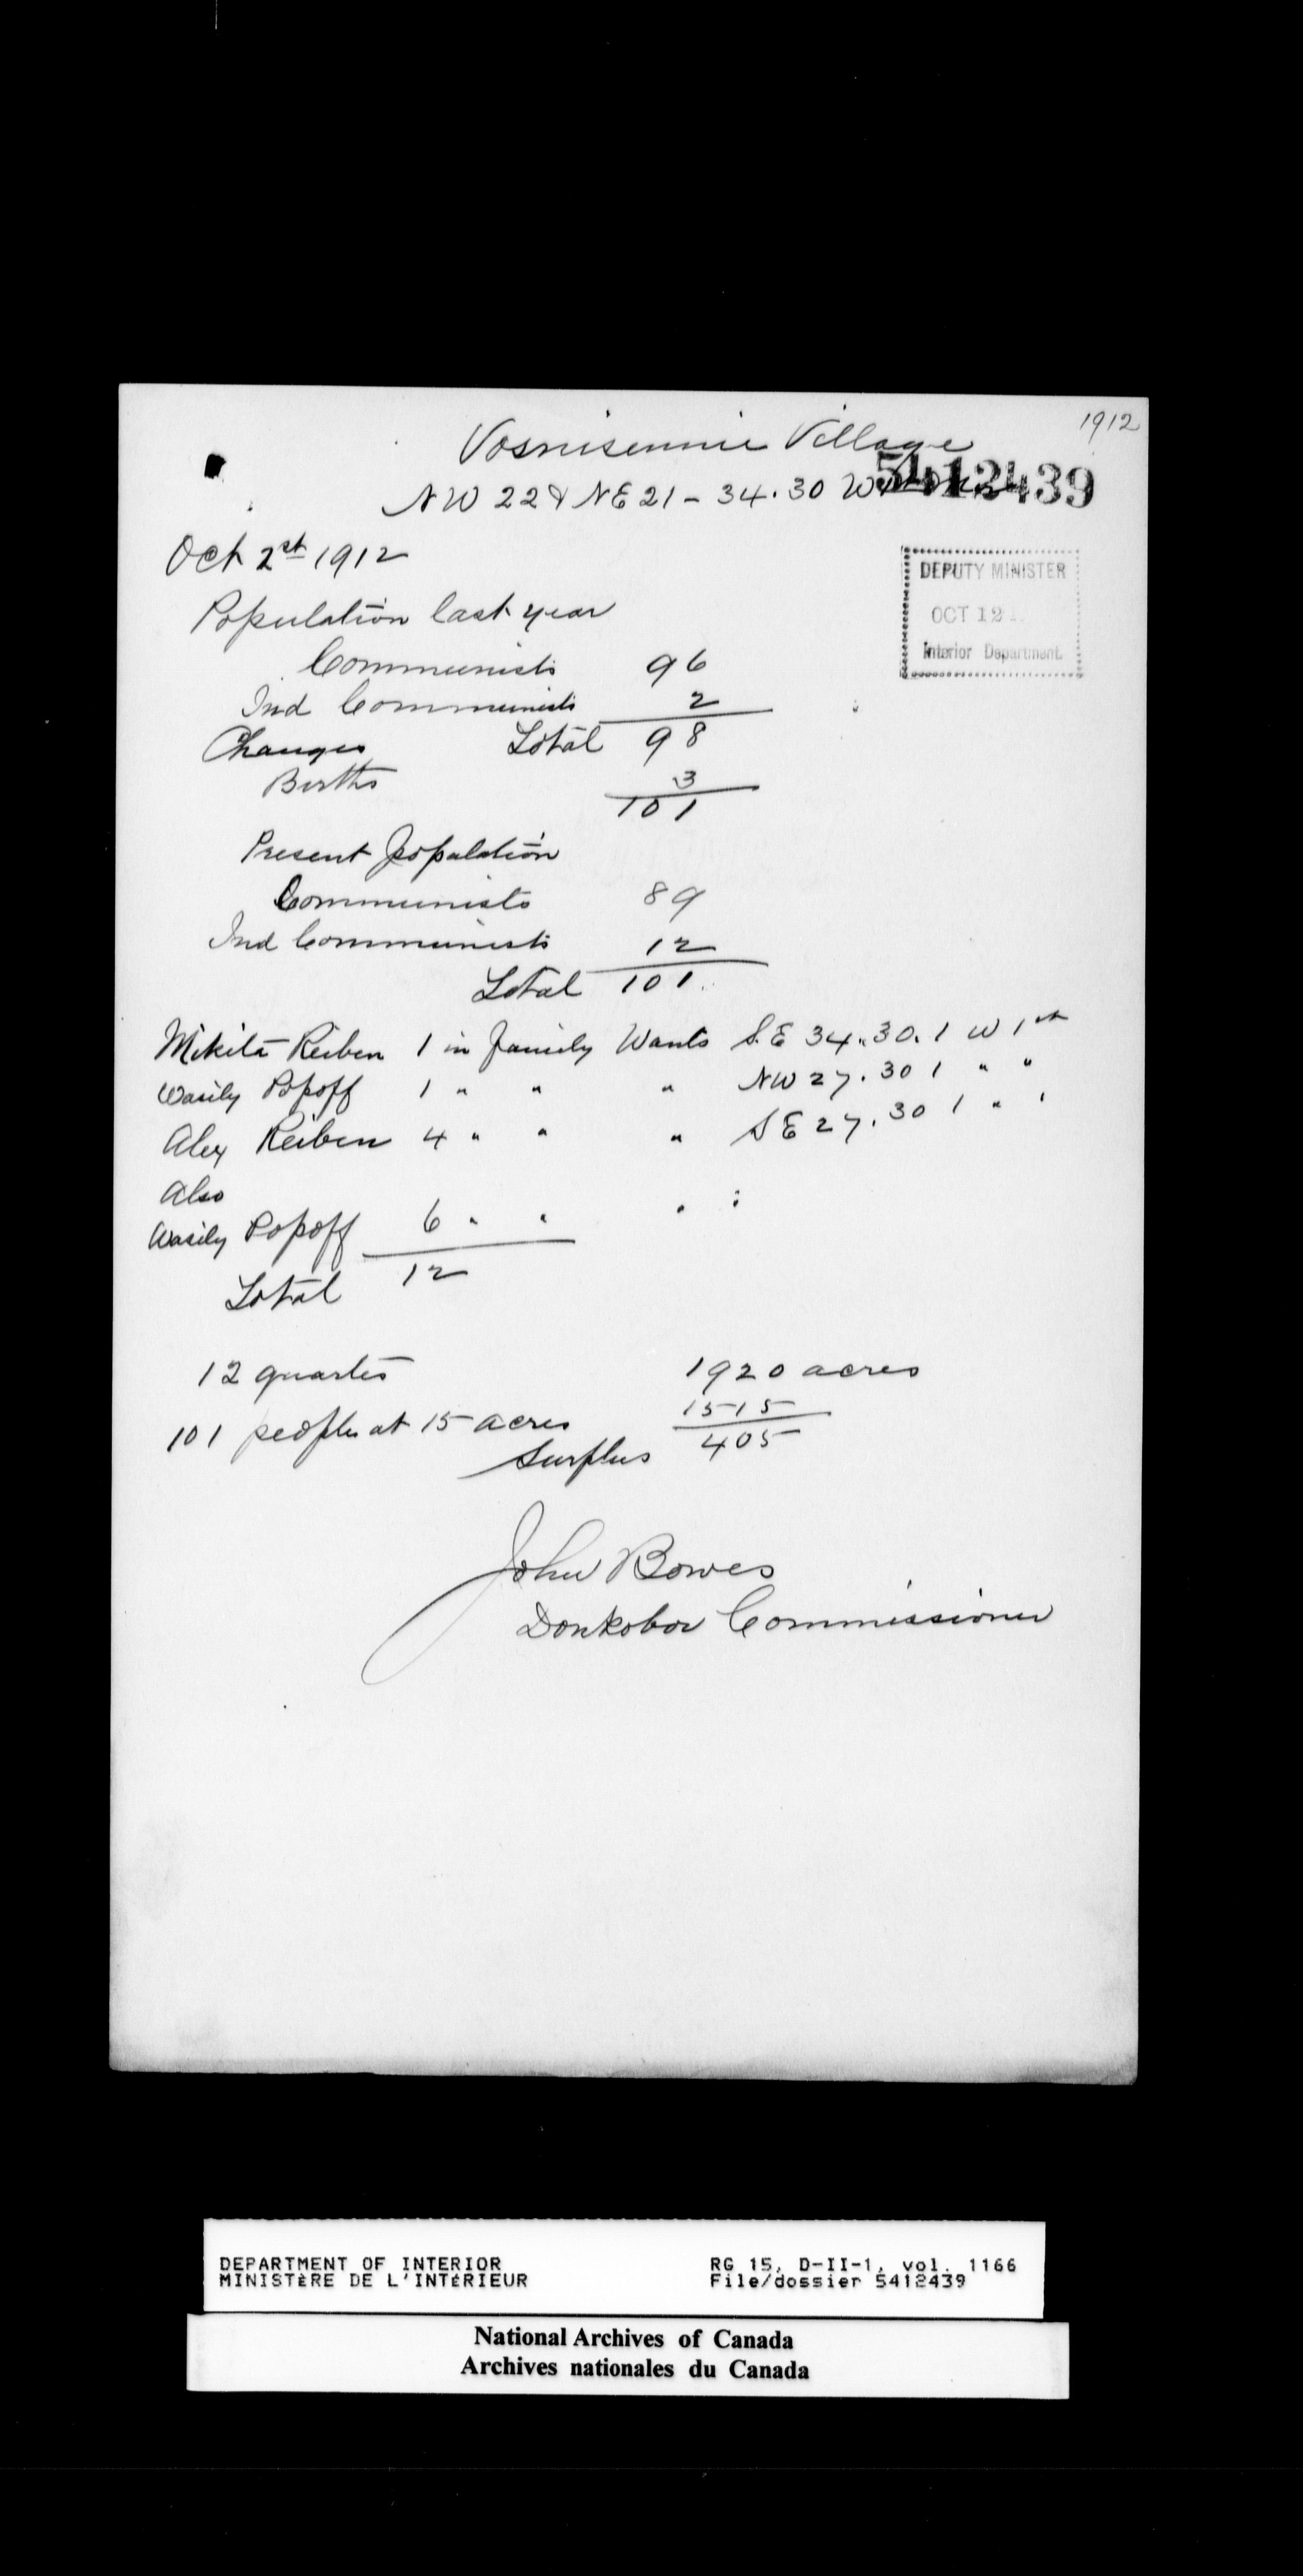 1912
Vosnisennie Village
5412439
NW 22 & NE 21 - 34.30 W
Oct 2st 1912
DEPUTY MINISTER
OCT 12
Interior Department.
Population last year
Communists 96
Ind Communists 2
Changes Total 98
Births 3
101
Present population
Communists 89
Ind Communists 12
Total 101
Mikita Reiben 1 in family Wants S.E 34.30.1 W 1st
Wasily Popoff 1 " " " NW 27.30 1 " "
Alex Reiben 4 " " " SE 27.30 1 " "
Also
Wasily Popoff 6 " "
Total 12
12 quartes 1920 acres
101 people at 15 acres 1515
Surplus 405
John Bowes
Doukobor Commissioner
DEPARTMENT OF INTERIOR RG 15, D-II-1, vol. 1166
MINISTÈRE DE L'INTÉRIEUR File/dossier 5412439
National Archives of Canada
Archives nationales du Canada